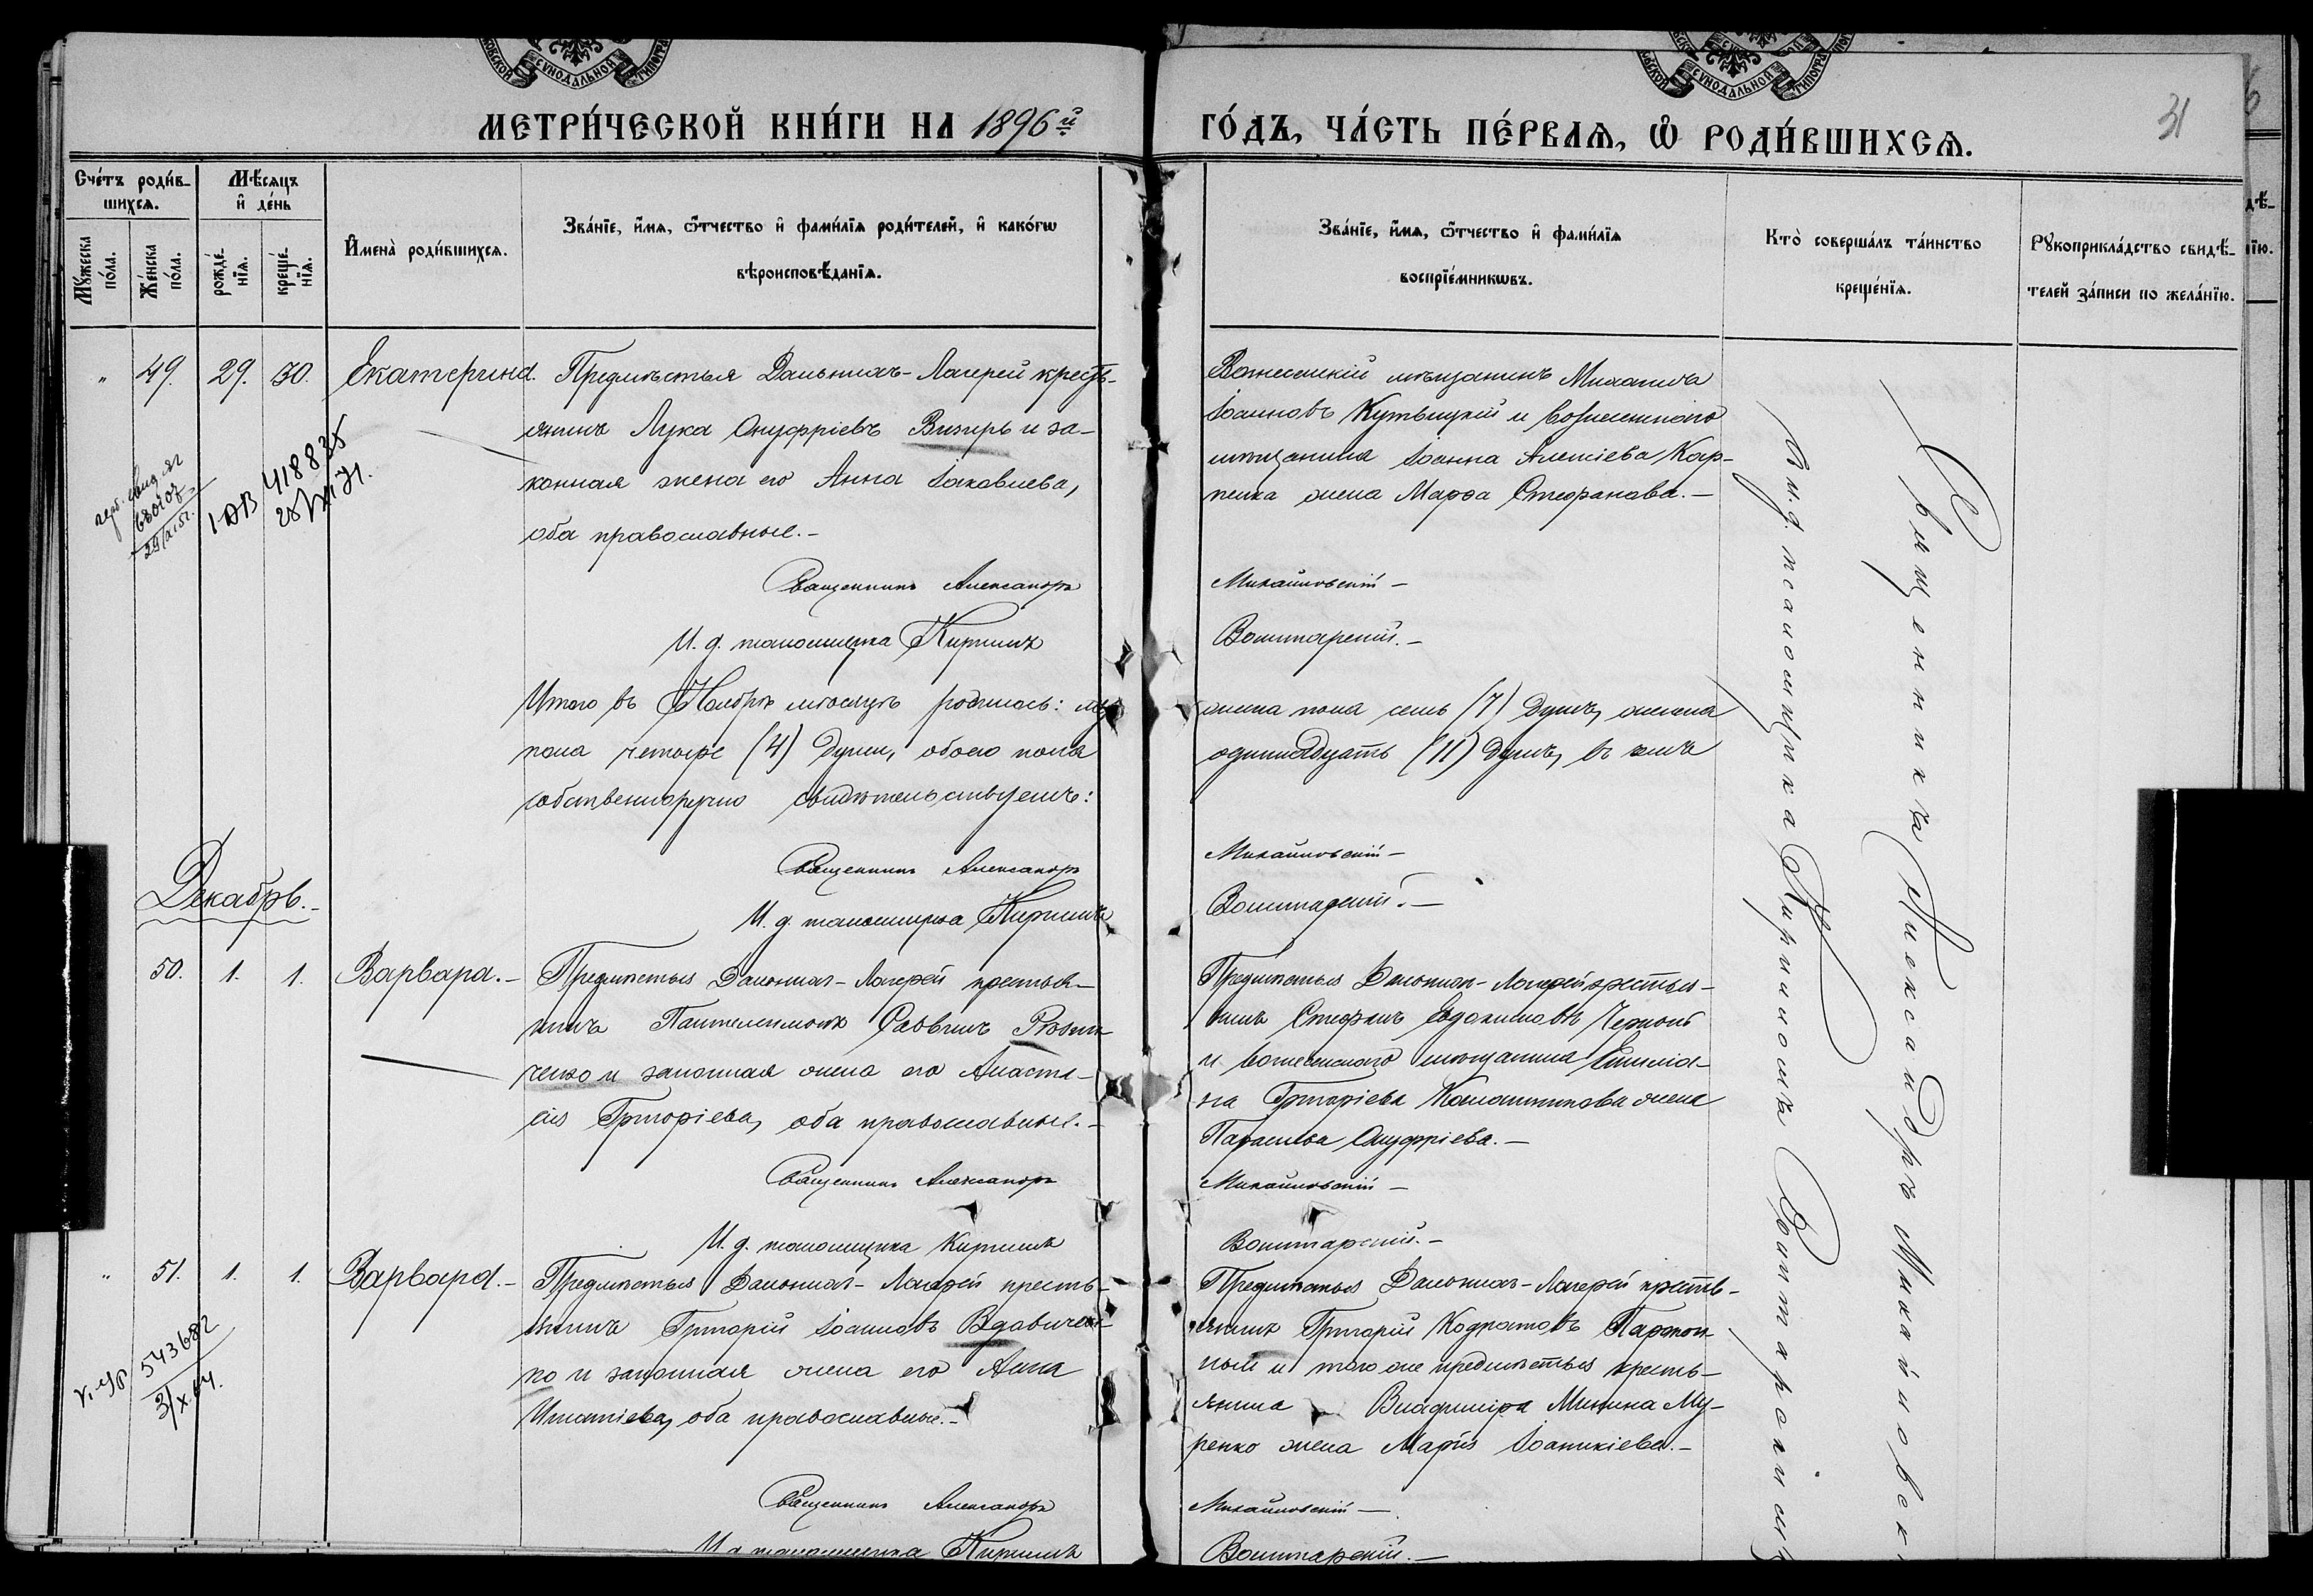 МЕТРИ́ЧЕСКОЙ КНИ́ГИ НА 1896й
ГО́ДЪ, ЧА́СТЬ ПЕ́РВАѦ, Ѽ РОДИ́ВШИХСѦ.
31
Сче́тъ роди́в-
шихсѧ.
Мѣ́сѧцъ
и҆ де́нь
Мꙋ́жеска
по́ла.
Же́нска
по́ла.
рожде́-
нїѧ.
креще́-
нїѧ.
И҆мена̀ роди́вшихсѧ.
Зва́нїе, и҆́мѧ, ѻ҆́тчество и҆ фами́лїѧ роди́телей, и҆ како́гѡ
вѣроисповѣ́данїѧ.
Зва́нїе, и҆́мѧ, ѻ҆́тчество и҆ фами́лїѧ
воспрїе́мникѡвъ.
Кто̀ соверша́лъ та́инство
креще́нїѧ.
Рꙋкоприкла́дство свидѣ́-
телей за́писи по жела́нїю.
" 49. 29. 30. Екатерина.
Предмѣстья Дальнихъ-Лагерей кресть-
янинъ Лука Онуфріевъ Визирь и за-
конная жена его Анна Іаковлева,
оба православные.-
Священникъ Александръ
И. д. псаломщика Кириллъ
Вознесенскій мѣщанинъ Михаилъ
Іоанновъ Кутыицкій и вознесенскаго
мѣщанина Іоанна Алексіева Кар-
пенка жена Марѳа Стефанова.-
Михайловскій-
Воштарскій.-
418835
Итого въ Ноябрѣ мѣсяцѣ родилось: му
пола четыре (4) души, обоего пола
собственноручно свидѣтельствуемъ:
Священникъ Александръ
И. д. псаломщика Кириллъ
жеска пола семь (7) душъ, женска
одиннадцать (11) душъ, въ чемъ
Михайловскій-
Воштарскій.-
Декабрь.-
50. 1. 1. Варвара.-
Предмѣстья Дальнихъ-Лагерей крестья-
нинъ Пантелеимонъ Саввинъ
ченко и законная жена его Анаста-
сія Григоріева, оба православные.-
Священникъ Александръ
И. д. псаломщика Кириллъ
Предмѣстья Дальнихъ-Лагерей крестья-
нинъ Стефанъ Евдокимовъ Черный
и вознесенскаго мѣщанина Емилiа-
на Григоріева Калашникова жена
Параскева Онуфріева.-
Михайловскій-
Воштарскій.-
" 51. 1. 1. Варвара.-
Предмѣстья Дальнихъ-Лагерей кресть-
янинъ Григорій Іоанновъ Вдовичен-
ко и законная жена его Анна
Игнатіева, оба православные.-
Священникъ Александръ
И. д. псаломщика Кириллъ
Предмѣстья Дальнихъ-Лагерей кресть-
янинъ Григорій Кодратовъ
и того же предмѣстья кресть-
янина Владиміра Минина Му-
ренко жена Марія Іоаникіева.-
Михайловскій-
Воштарскій.-
543682
3/X.64.
Священникъ Александръ Михайловск
И. д. псаломщика Кириллъ Воштарскій